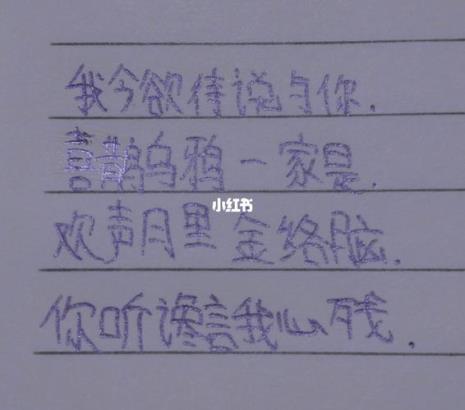 我今欲待说与你.
喜鹊乌鸦一家是.
小红书
欢声月里金络脑.
你听谗言我心残.